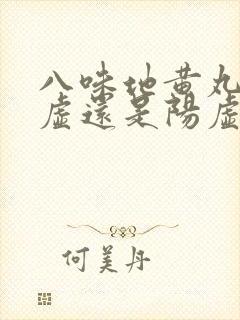 八味地黄丸
虚还是陽虚
何美丹